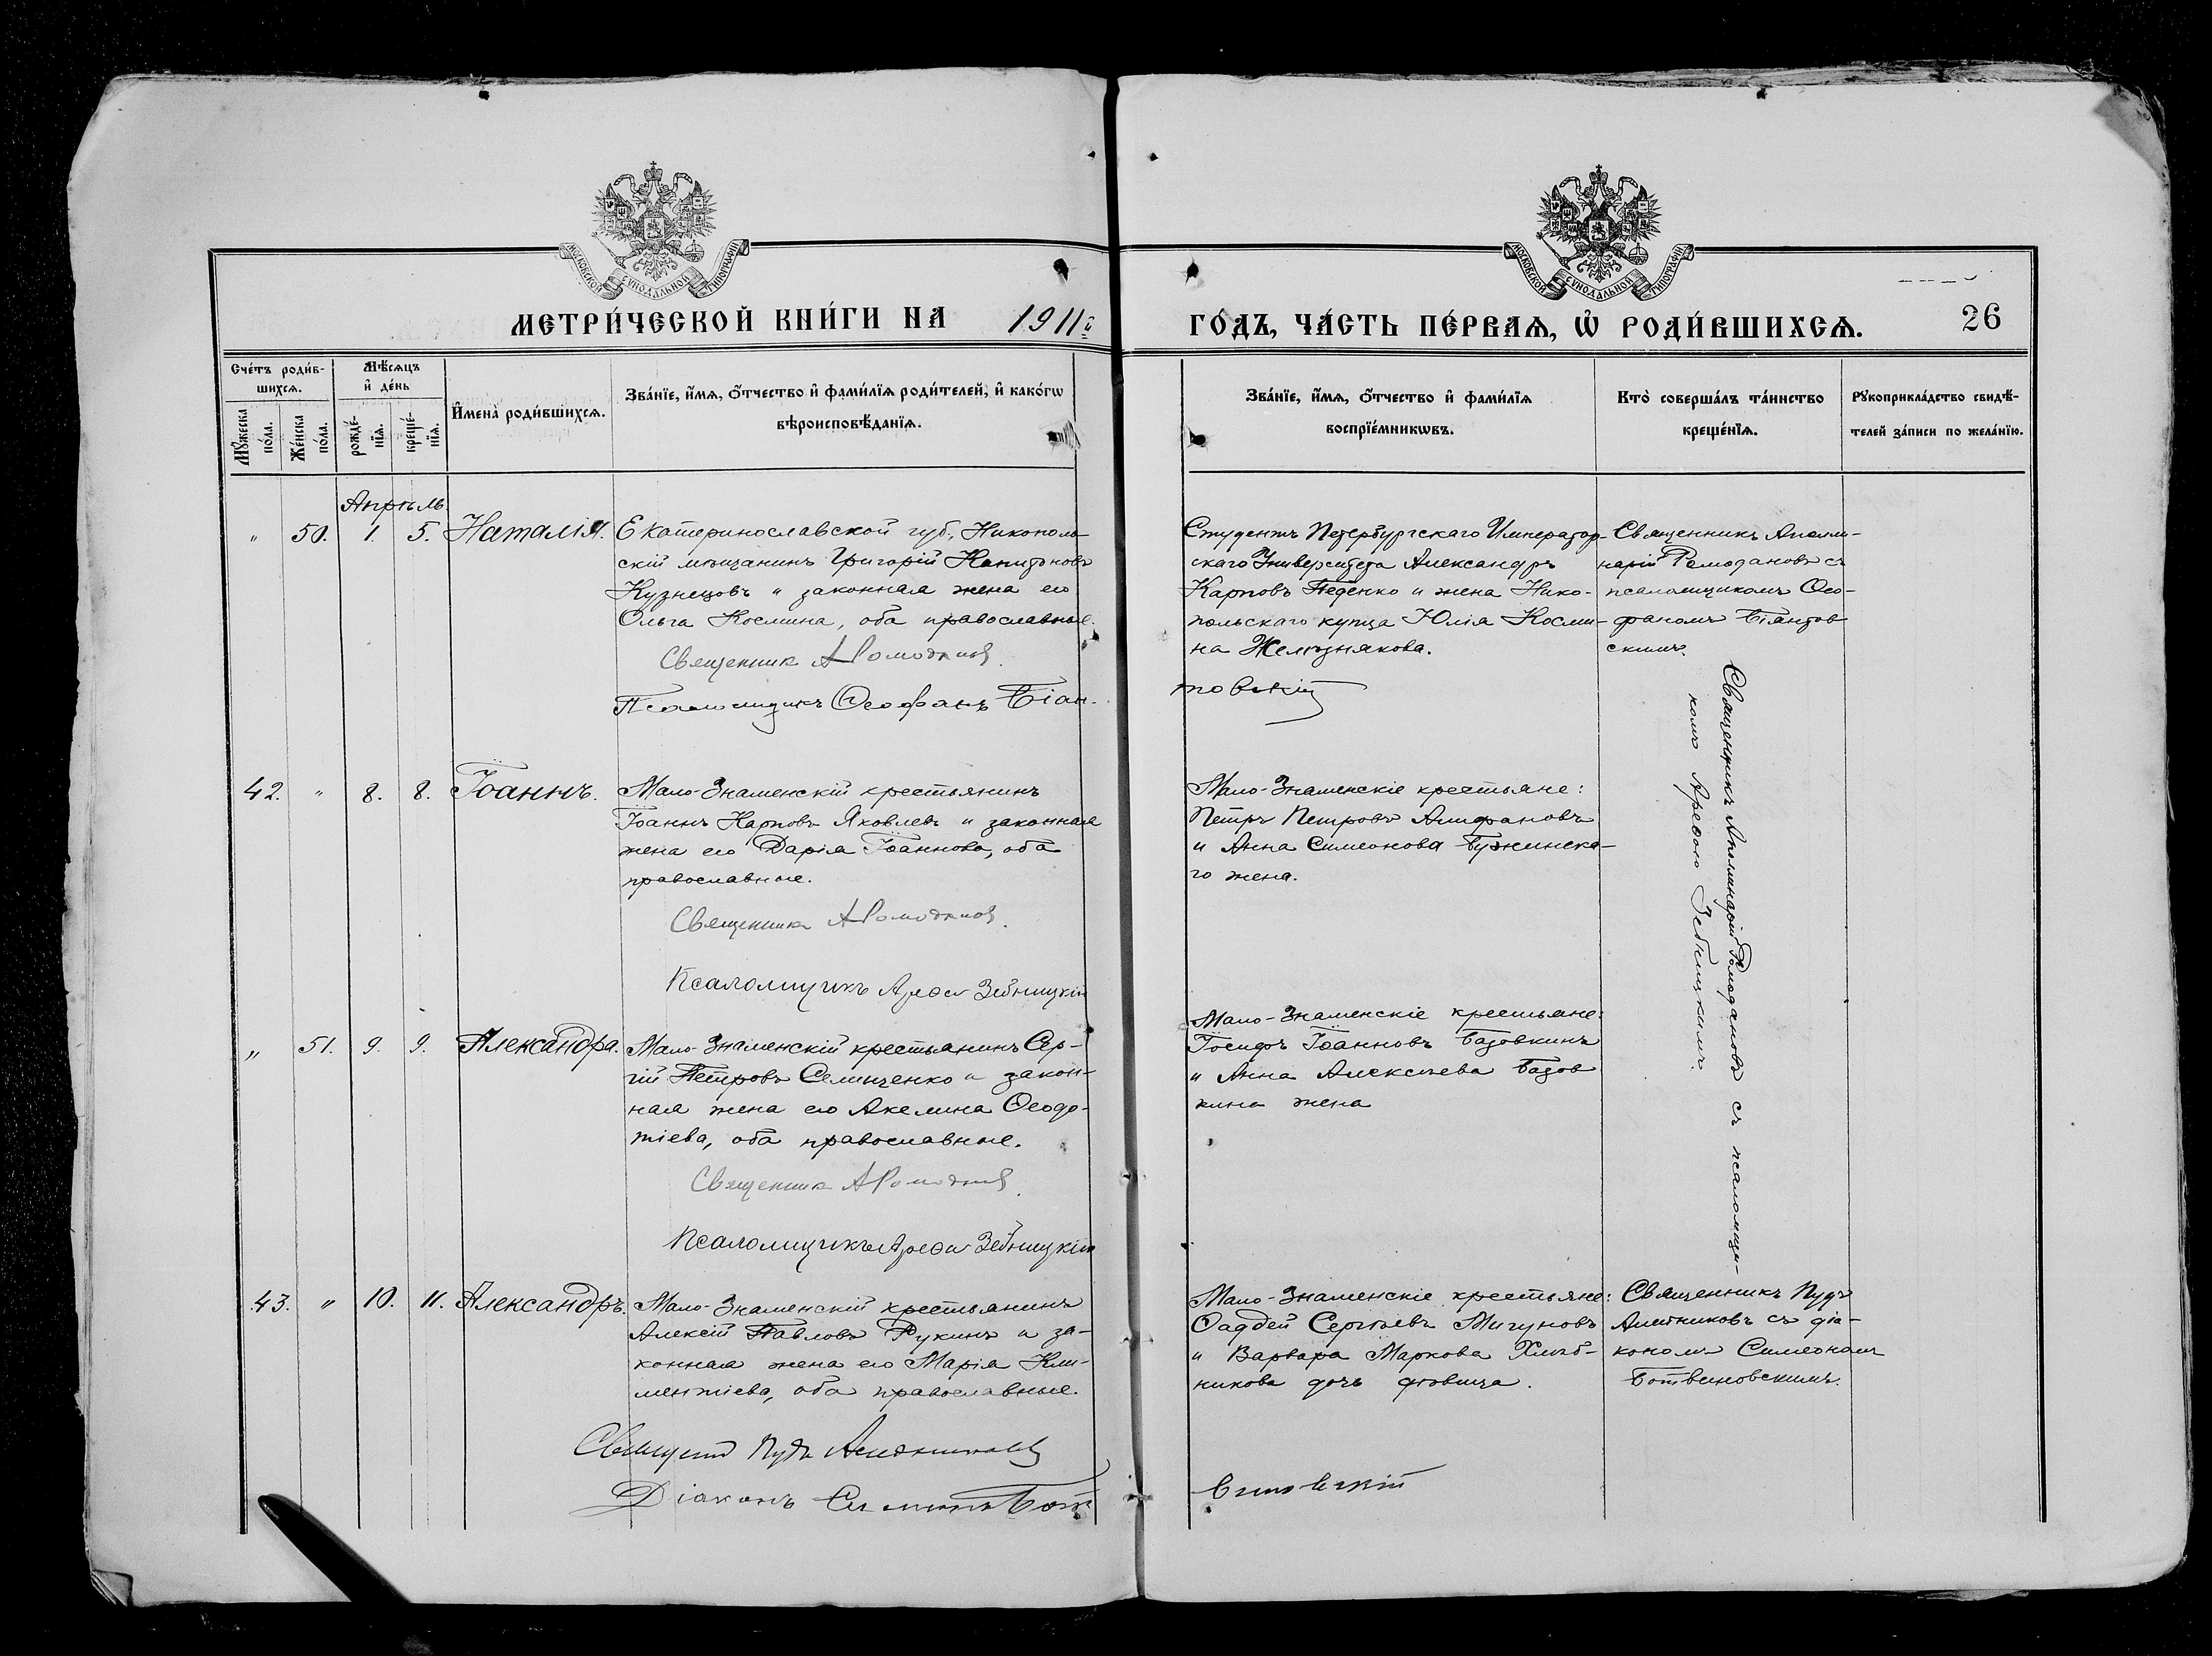 МОСКОВСКОЙ СѴНОДАЛЬНОЙ ТИПОГРАФІИ
МОСКОВСКОЙ СѴНОДАЛЬНОЙ ТИПОГРАФІИ
МЕТРИ́ЧЕСКОЙ КНИ́ГИ НА 1911й
ГО́ДЪ, ЧА́СТЬ ПЕ́РВАѦ, Ѡ҆ РОДИ́ВШИХСѦ.
26
Сче́тъ роди́в-
шихсѧ.
Мꙋ́жеска по́ла.
Же́нска по́ла.
Мѣ́сѧцъ
и҆ де́нь
рожде́-
нїѧ.
креще́-
нїѧ.
И҆мена̀ роди́вшихсѧ.
Зва́нїе, и҆́мѧ, ѻ҆́тчество и҆ фами́лїѧ роди́телей, и҆ како́гѡ
вѣроисповѣ́данїѧ.
Зва́нїе, и҆́мѧ, ѻ҆́тчество и҆ фами́лїѧ
воспрїе́мникѡвъ.
Кто̀ соверша́лъ та́инство
креще́нїѧ.
Рꙋкоприкла́дство свидѣ́-
телей за́писи по жела́нїю.
Апрѣль.
" 50. 1. 5. Наталія.
Екатеринославской губ., Никополь-
скій мѣщанинъ Григорій Капитоновъ
Кузнецовъ и законная жена его
Ольга Космина, оба православные.
Священник АРомоданов
Псаломщикъ Ѳеофанъ Біан-
Студентъ Петербургскаго Император-
скаго Университета Александръ
Карповъ Педенко и жена Нико-
польскаго купца Юлія Косми-
на Желѣзнякова.
товскій
Священникъ Аполи-
нарій Ромодановъ съ
псаломщикомъ Ѳео-
фаномъ Біянтов
скимъ.
42. " 8. 8. Іоаннъ.
Мало-Знаменскій крестьянинъ
Іоаннъ Карповъ Яковлевъ и законная
жена его Дарія Іоаннова, оба
православные.
Священник АРомоданов.
Псаломщикъ Арефа Зебницкій
Мало-Знаменскіе крестьяне:
Петръ Петровъ Алифановъ
и Анна Симеонова Бужинска-
го жена.
Священникъ Аполинарій Ромодановъ съ псаломщи-
комъ Арефою Зебницкимъ.
" 51. 9. 9. Александра.
Мало-Знаменскій крестьянинъ Сер-
гій Петровъ Семиченко и закон-
ная жена его Акелина Ѳеодо-
тіева, оба православные.
Священник АРомоданов.
Псаломщикъ Арефа Зебницкій
Мало-Знаменскіе крестьяне:
Іосифъ Іоанновъ Базовкинъ
и Анна Алексѣева Базов
кина жена
43. " 10. 11. Александръ.
Мало-Знаменскій крестьянинъ
Алексій Павловъ Рукинъ и за-
конная жена его Марія Кли-
ментіева, оба православные.
Пудъ
Діаконъ Симеонъ Бот
Мало-Знаменскіе крестьяне:
Ѳаддей Сергѣевъ Мигуновъ
и Варвара Маркова Хлѣб-
никова дочь дѣвица.
виновскій
Священникъ Пудъ
съ діа-
кономъ Симеономъ
Ботвиновскимъ.